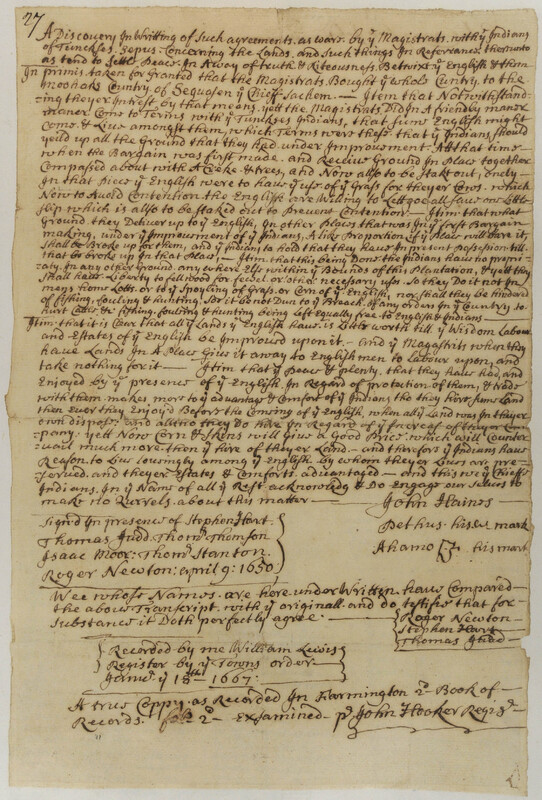 27
A Discovery In Writting of Such agreements. as warr. by yͤ Magistrats. with yͤ Indians
of Tunckses. Sepus: Concerning the Lands. and such things In Referrance. thereunto
as tend to Settle Peace. In A way of truth & Riteousness. Betwixt yͤ English & them
In primis taken for Granted that the Magistrats. Bought yͤ whole Cuntry. to the
moohaks Country. of Sequasen yͤ Chieff-Sachem. — Item that Notwithstand-
-ing theyer Intrest. by that means. yett the Magistrats Did In A friendly maner
Come to Terms with yͤ Tunckses Indians, that sum English might
Come & Live amongst them, which Terms were these that yͤ Indians, should
yeild up all the Ground that they had under Improvement. At that time
when the Bargain was first made. and Receive Ground In Place together
Compassed about with A Creke & trees, and Now also to be stakt out; onely -
In that piece yͤ English were to have yͤ use of yͤ Grass for theyer Cows. which
Now to Avoid Contention the English are Willing to Lett goe all save one Little
slip which is also to be staked out to Prevent Contention: — Item that what
Ground. they Deliver up to yͤ English, In other Places that was In yͤ first Bargain
making, under yͤ Improvement of yͤ Indians. A like Proportion, if yͤ Place will Bare it,
shall be Broke up for them, and yͤ Indians to hold that they have In present possesion till
that be broke up In that Place, — Item that this being Done the Indians have no propri-
-aty. In any other Ground any where Els within yͤ Bounds of this Plantation, & yett they
shall have Liberty to fell wood for fewel or other necessary uses. So they Do it not In
mens home Lotts. or to yͤ Spoyling of Grass or Corn of yͤ English, nor shall they be hindred
of fishing, fouling & hunting. So it be not Dun to yͤ Breach. of any orders In yͤ Cuntry to
hurt Cattle & fishing. fouling & hunting being Left equally free to English & Indians —
Item: that it is Clear that all yͤ Lands yͤ English have. is Little worth till yͤ Wisdom Labour
and Estates of yͤ English be Improved upon it - and yͤ Magastrits when they
have Lands In A Place Give it away to English men to Labour upon, and
take nothing for it — Item that yͤ Peace & plenty, that they have had, and
Enjoyed by yͤ presence of yͤ English. In Regard of protection of them, & trade
with them. makes more to yͤ advantage & Comfort of yͤ Indians tho they have sume Land
then Ever they Enjoyd Before the Coming of yͤ English. when all yͤ Land was In theyer
own dispose: and altho they do have In Regard of yͤ Increas of theyer Com-
pany: yett Now Corn & Skens will Give A Good Price. which will Counter
vail much more. then yͤ hire of theyer Land. - and therefor yͤ Indians have
Reason to Live Louveingly among yͤ English. by whom theyer Lives are pre-
served. and theyer Estats & Comforts. advantaged — And this we yͤ Chiefs
Indians. In yͤ Name of all yͤ Rest acknowlidg & Do Engage our selves to
make no Qurrels. about this matter —
John Haines —
Pethus his mark
Ahamo his mark
Signd In presence of Stephen Hart
Thomas Judd. Thomͬ Thomson
Isaac Moor: Thomͬ Stanton.
Roger Newton: april 9: 1650
Wee whose Names. are here under Written have Compared -
the above Transcript. with yͤ originall. and do testifie that for
Substance it Doth perfectly agree. —
Roger Newton —
Stephen Hart
Thomas Judd. —
Recorded by me William Lewis
Register by yͤ Towns order.
Janeͬ yͤ 18th 1667: —
A true Coppy. as Recorded In Farmington 2ᵈ Book of
Records. folio 2ᵈ - Examined - pͬ John Hooker Regisͬ